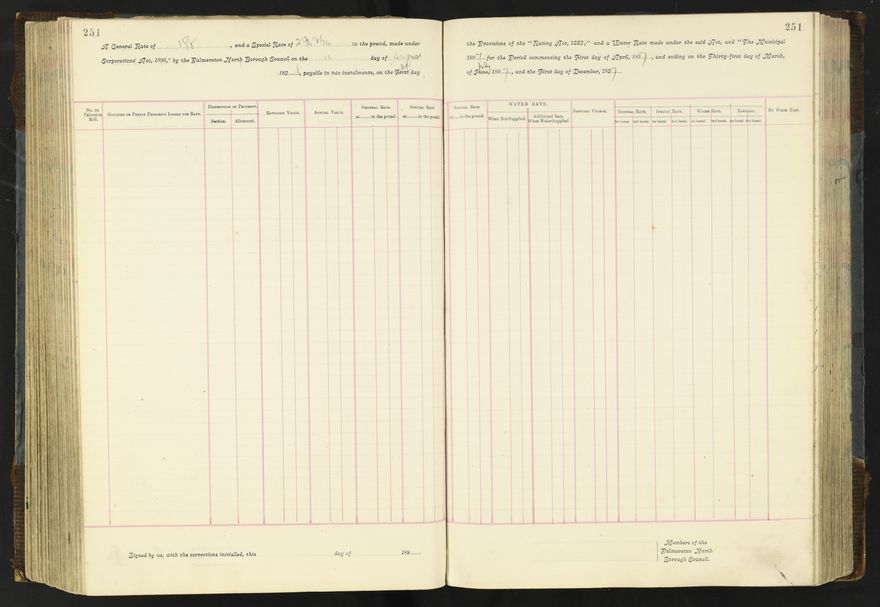 251
A General Rate of 1/8, and a Special Rate of in the pound, made under
Corporations' Act, 1886," by the Palmerston North Borough Council on the day of August
189, payable in two instalments, on the First day
No. on Valuation Roll.
Occupier or Person Primarily Liable for Rate.
Description of Property.
Section.
Allotment.
Rateable Value.
Annual Value.
General Rate
at in the pound.
Special Rate
at in the pound.
Signed by us, with the corrections initialled, this day of 189
251
the Provisions of the "Rating Act, 1882;" and a Water Rate made under the said Act, and "The Municipal
1897 for the Period commencing the First day of April, 1897, and ending on the Thirty-first day of March,
July
of June, 1897, and the First day of December, 1897.
Special Rate
at in the pound.
WATER RATE.
When Not Supplied.
Additional Rate When Water Supplied
Sanitary Charge.
General Rate.
1st Instal. 2nd Instal.
Special Rate.
1st Instal. 2nd Instal.
Water Rate.
1st Instal. 2nd Instal.
Sanitary.
1st Instal. 2nd Instal.
By Whom Paid.
Members of the
Palmerston North
Borough Council.